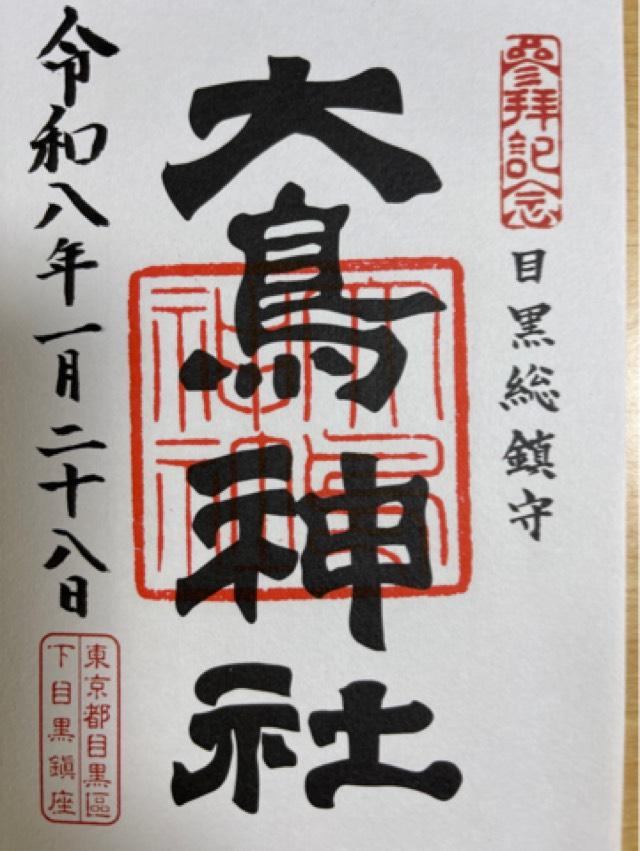 參拝記念
目黒総鎮守
大鳥神社
大鳥神社
令和八年一月二十八日
東京都目黒區
下目黒鎮座